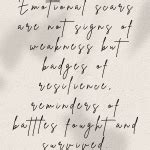 Emotional scars
are not signs of
weakness but
badges of
resilience,
reminders of
battles fought and
survived